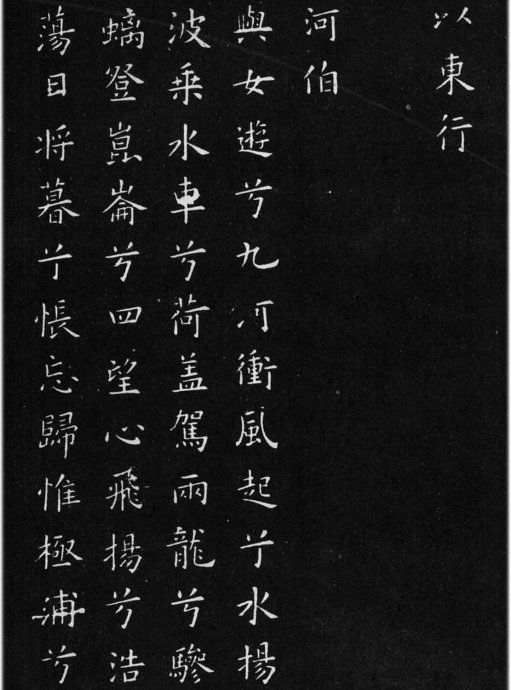 以東行
河伯
與女遊兮九河衝風起兮水揚
波乗水車兮荷盖駕兩龍兮驂
螭登崑崙兮四望心飛揚兮浩
蕩日将暮兮悵忘歸惟極浦兮